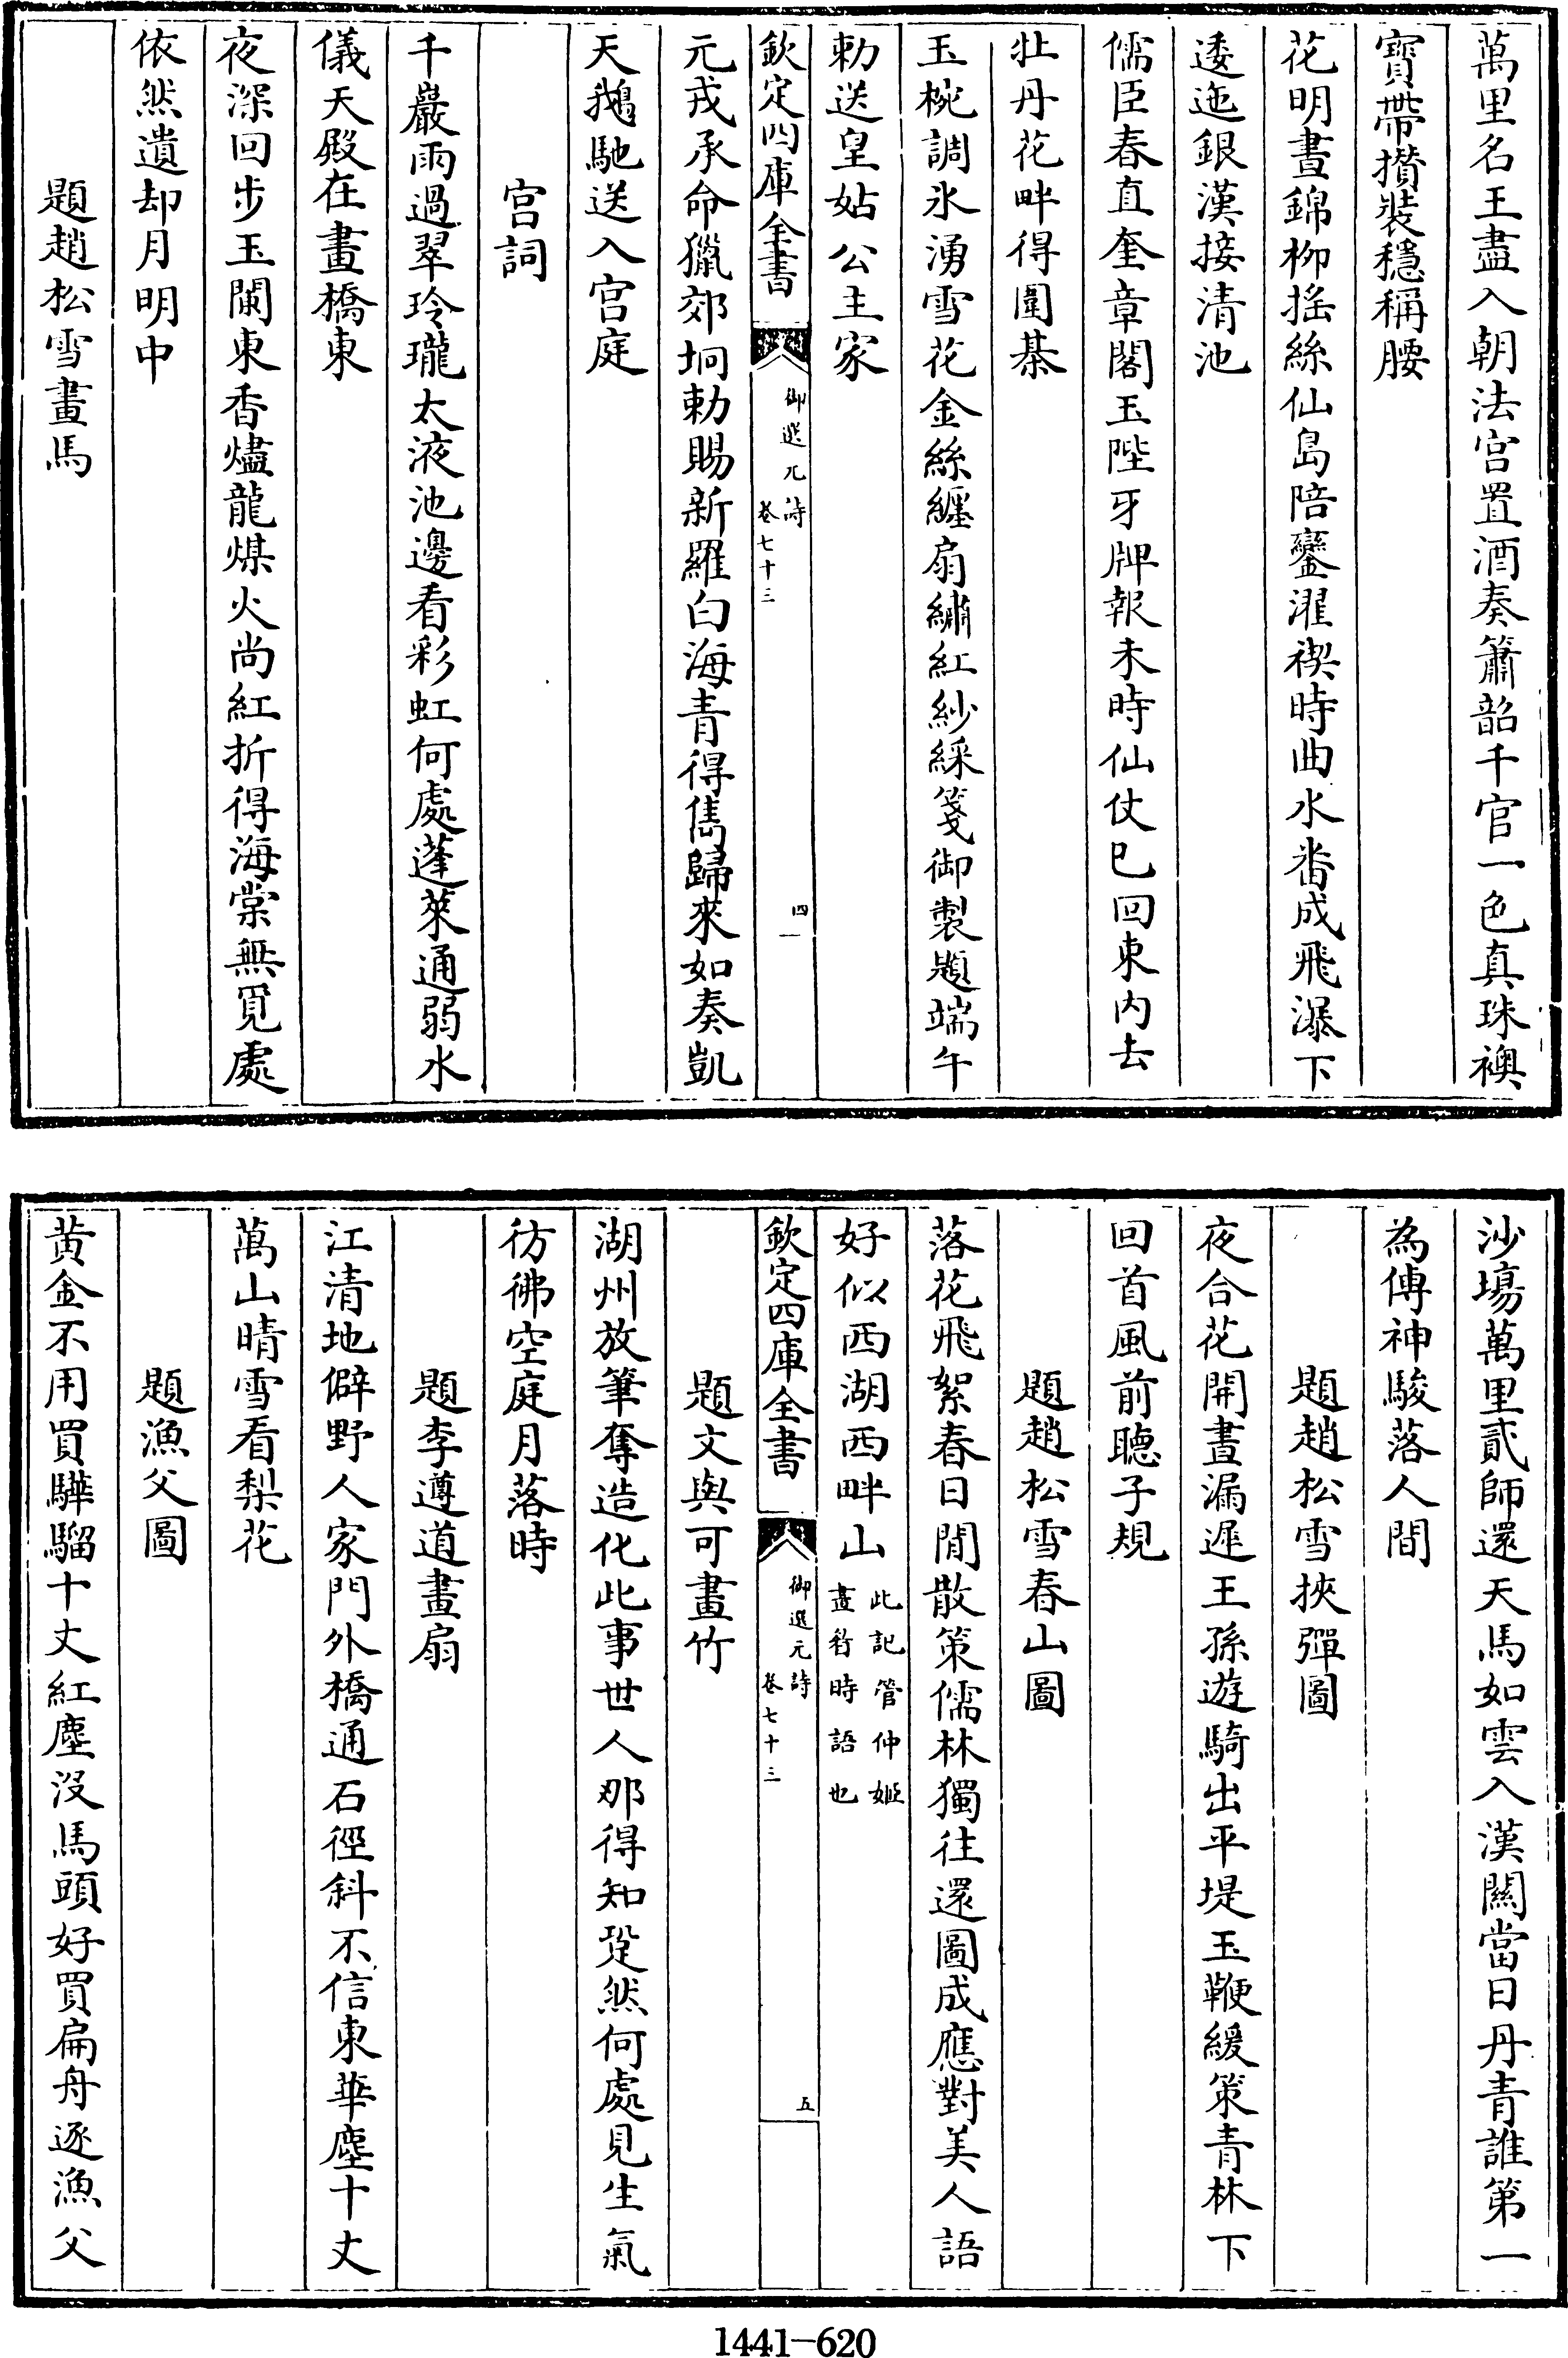 萬里名王盡入朝法宫置酒奏簫韶千官一色真珠襖
寳帶攢裝穩稱腰
花明晝錦柳摇絲仙島陪鑾濯禊時曲水畨成飛瀑下
逶迤銀漢接清池
儒臣春直奎章閣玉陛牙牌報未時仙仗已回東内去
牡丹花畔得圍棊
玉椀調氷湧雪花金絲纏扇繡紅紗綵箋御製題端午
勅送皇姑公主家
欽定四庫全書
御選元詩
卷七十三
四
元戎承命獵郊坰勅賜新羅白海青得雋歸來如奏凱
天鵝馳送入宫庭
宫詞
千巖雨過翠玲瓏太液池邊看彩虹何處蓬萊通弱水
儀天殿在畫橋東
夜深回步玉闌東香燼龍煤火尚紅折得海棠無覓處
依然遺却月明中
題趙松雪畫馬
沙塲萬里貳師還天馬如雲入漢關當日丹青誰第一
為傳神駿落人間
題趙松雪挾彈圖
夜合花開晝漏遲王孫遊騎出平堤玉鞭緩策青林下
回首風前聽子規
題趙松雪春山圖
落花飛絮春日閒散策儒林獨往還圖成應對美人語
好似西湖西畔山
此記管仲姬
畫竹時語也
欽定四庫全書
御選元詩
卷七十三
五
題文與可畫竹
湖州放筆奪造化此事世人那得知跫然何處見生氣
彷彿空庭月落時
題李遵道畫扇
江清地僻野人家門外橋通石徑斜不信東華塵十丈
萬山晴雪看梨花
題漁父圖
黄金不用買驊騮十丈紅塵没馬頭好買扁舟逐漁父
1441-620